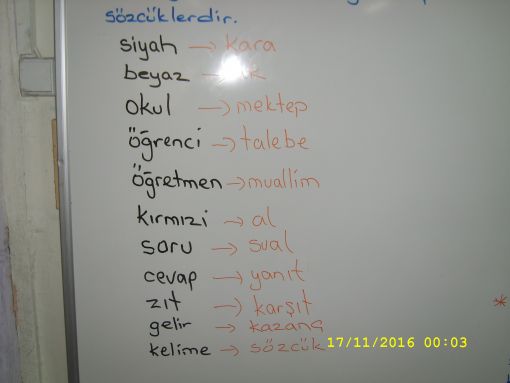 sözcüklerdir.
siyah → kara
beyaz → ak
okul → mektep
öğrenci → talebe
öğretmen → muallim
kırmızi → al
soru → sual
cevap → yanıt
zıt → karşıt
gelir → kazanç
kelime → sözcük
17/11/2016 00:03